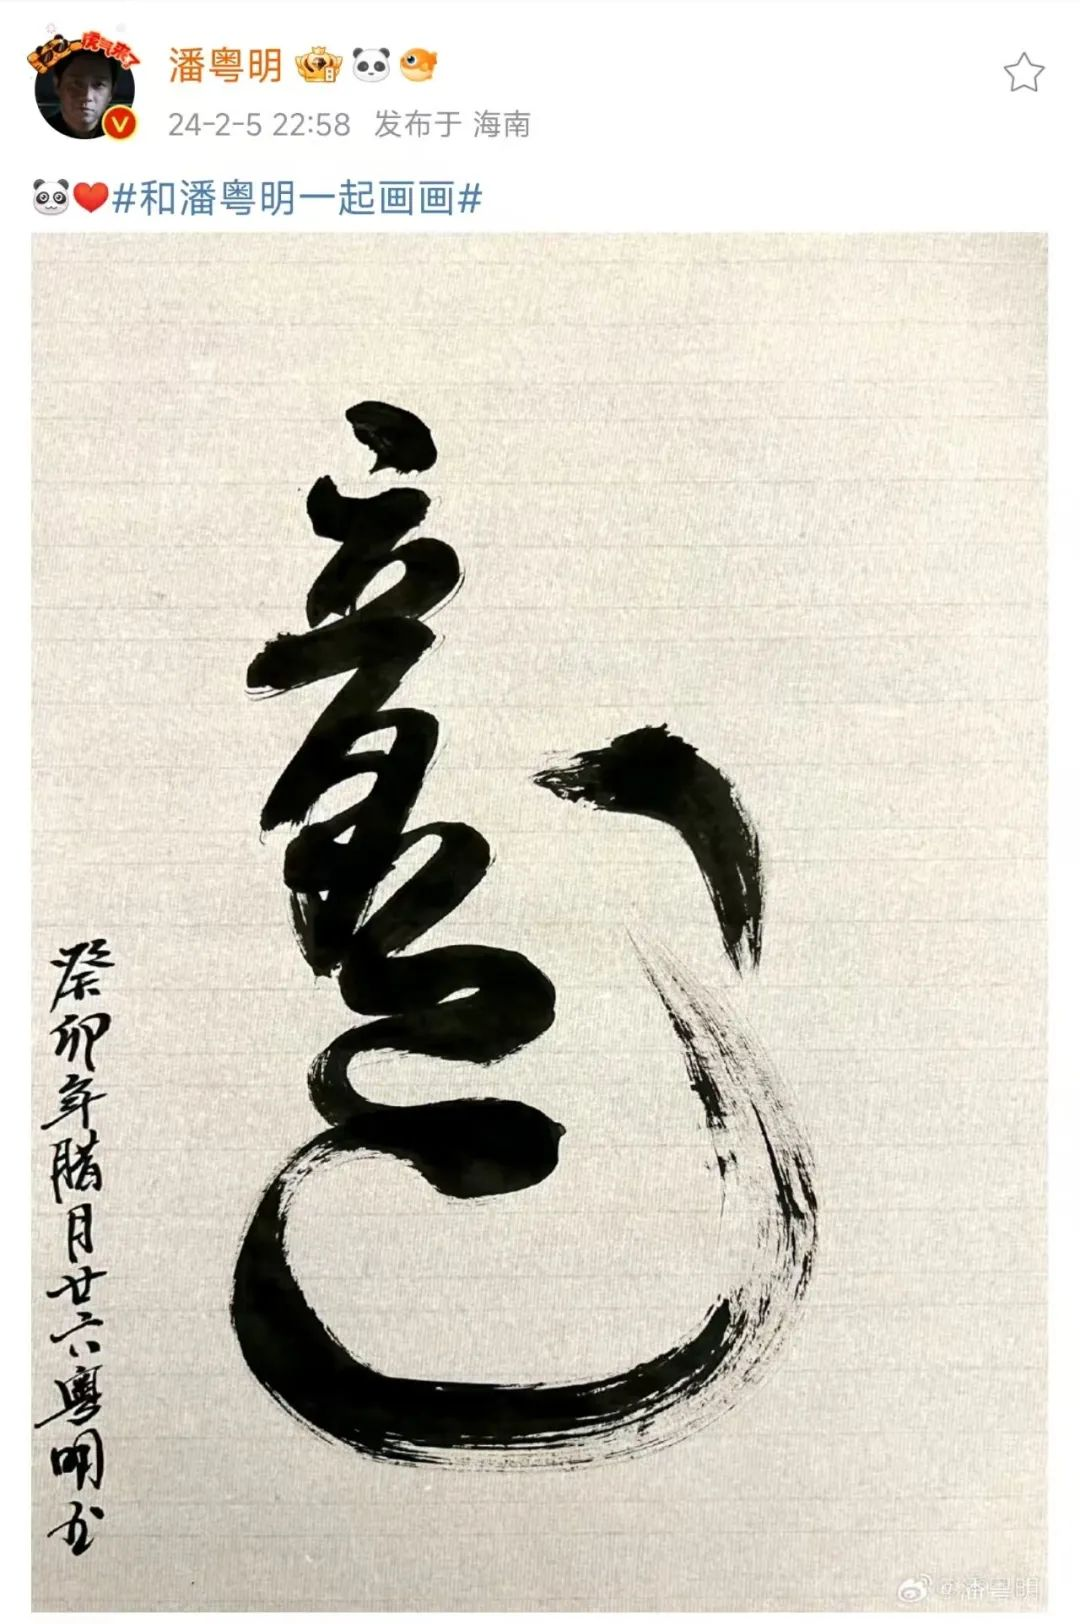 虎气来了
潘粤明
24-2-5 22:58 发布于 海南
#和潘粤明一起画画#
龍
癸卯年腊月廿六粤明书
@潘粤明